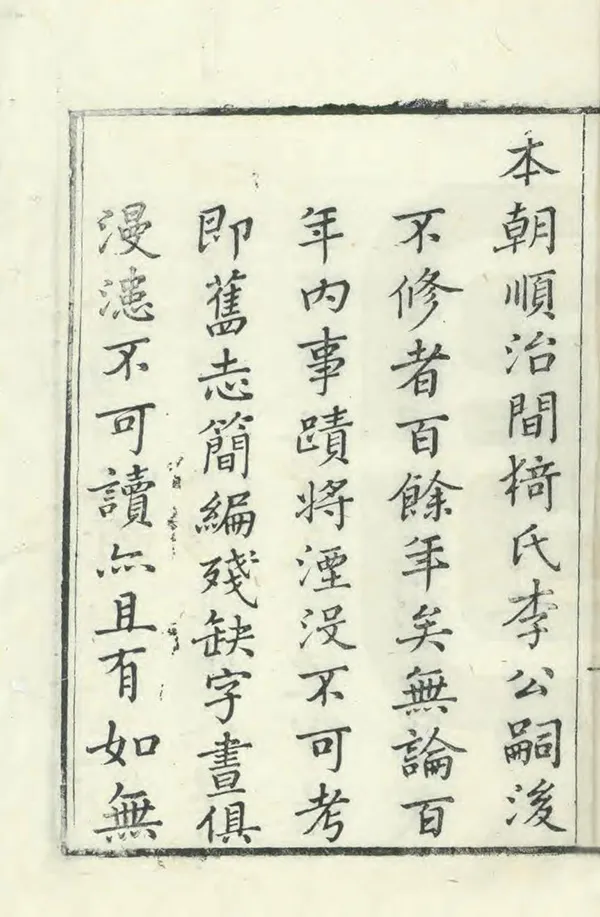 本朝順治間猗氏李公嗣浚
不修者百餘年矣無論百
年內事蹟將湮没不可考
即舊志簡編殘缺字畫俱
漫漶不可讀亦且有如無